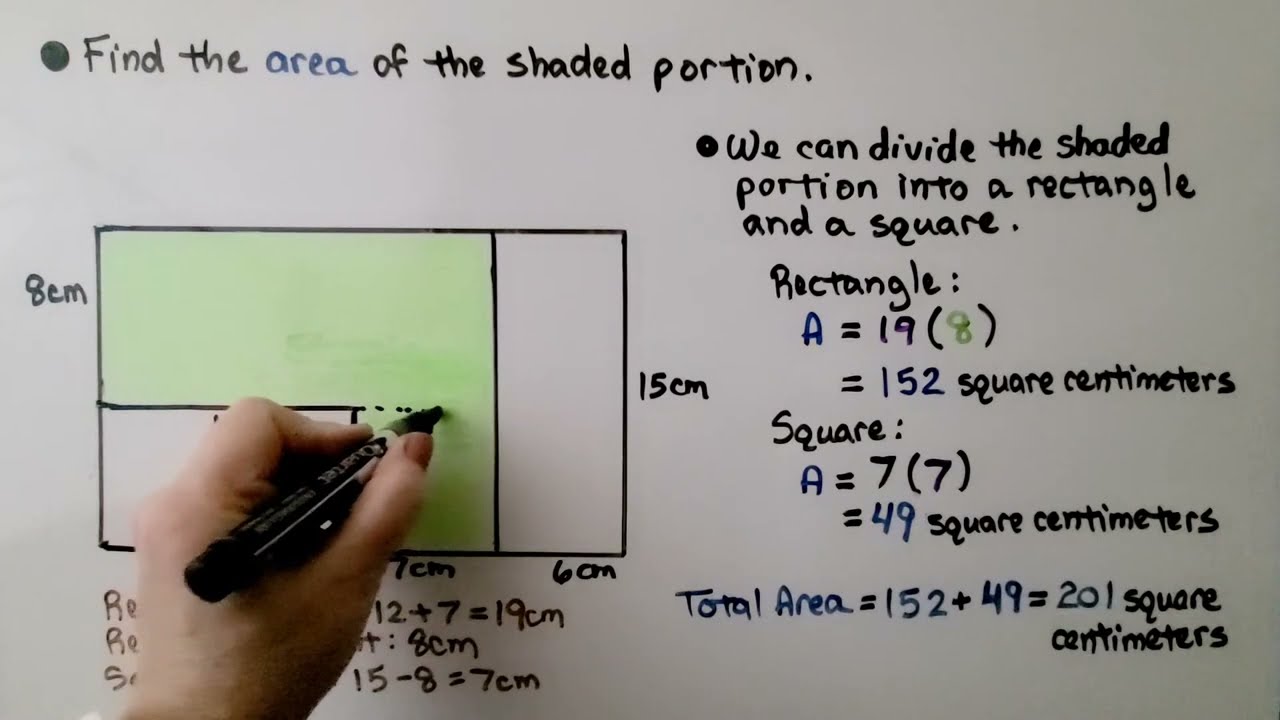 Find the area of the shaded portion.
We can divide the shaded
portion into a rectangle
and a square.
Rectangle:
A = 19(8)
= 152 square centimeters
Square:
A = 7(7)
= 49 square centimeters
Total Area = 152 + 49 = 201 square
centimeters
8cm
15cm
7cm
6cm
12+7 = 19cm
: 8cm
15-8 = 7cm